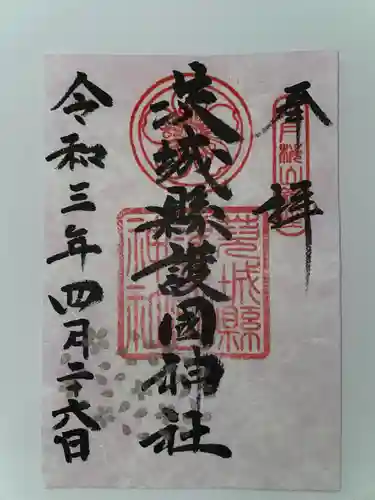 奉拝
茨城縣護國神社
令和三年四月二十六日
茨城縣
神社